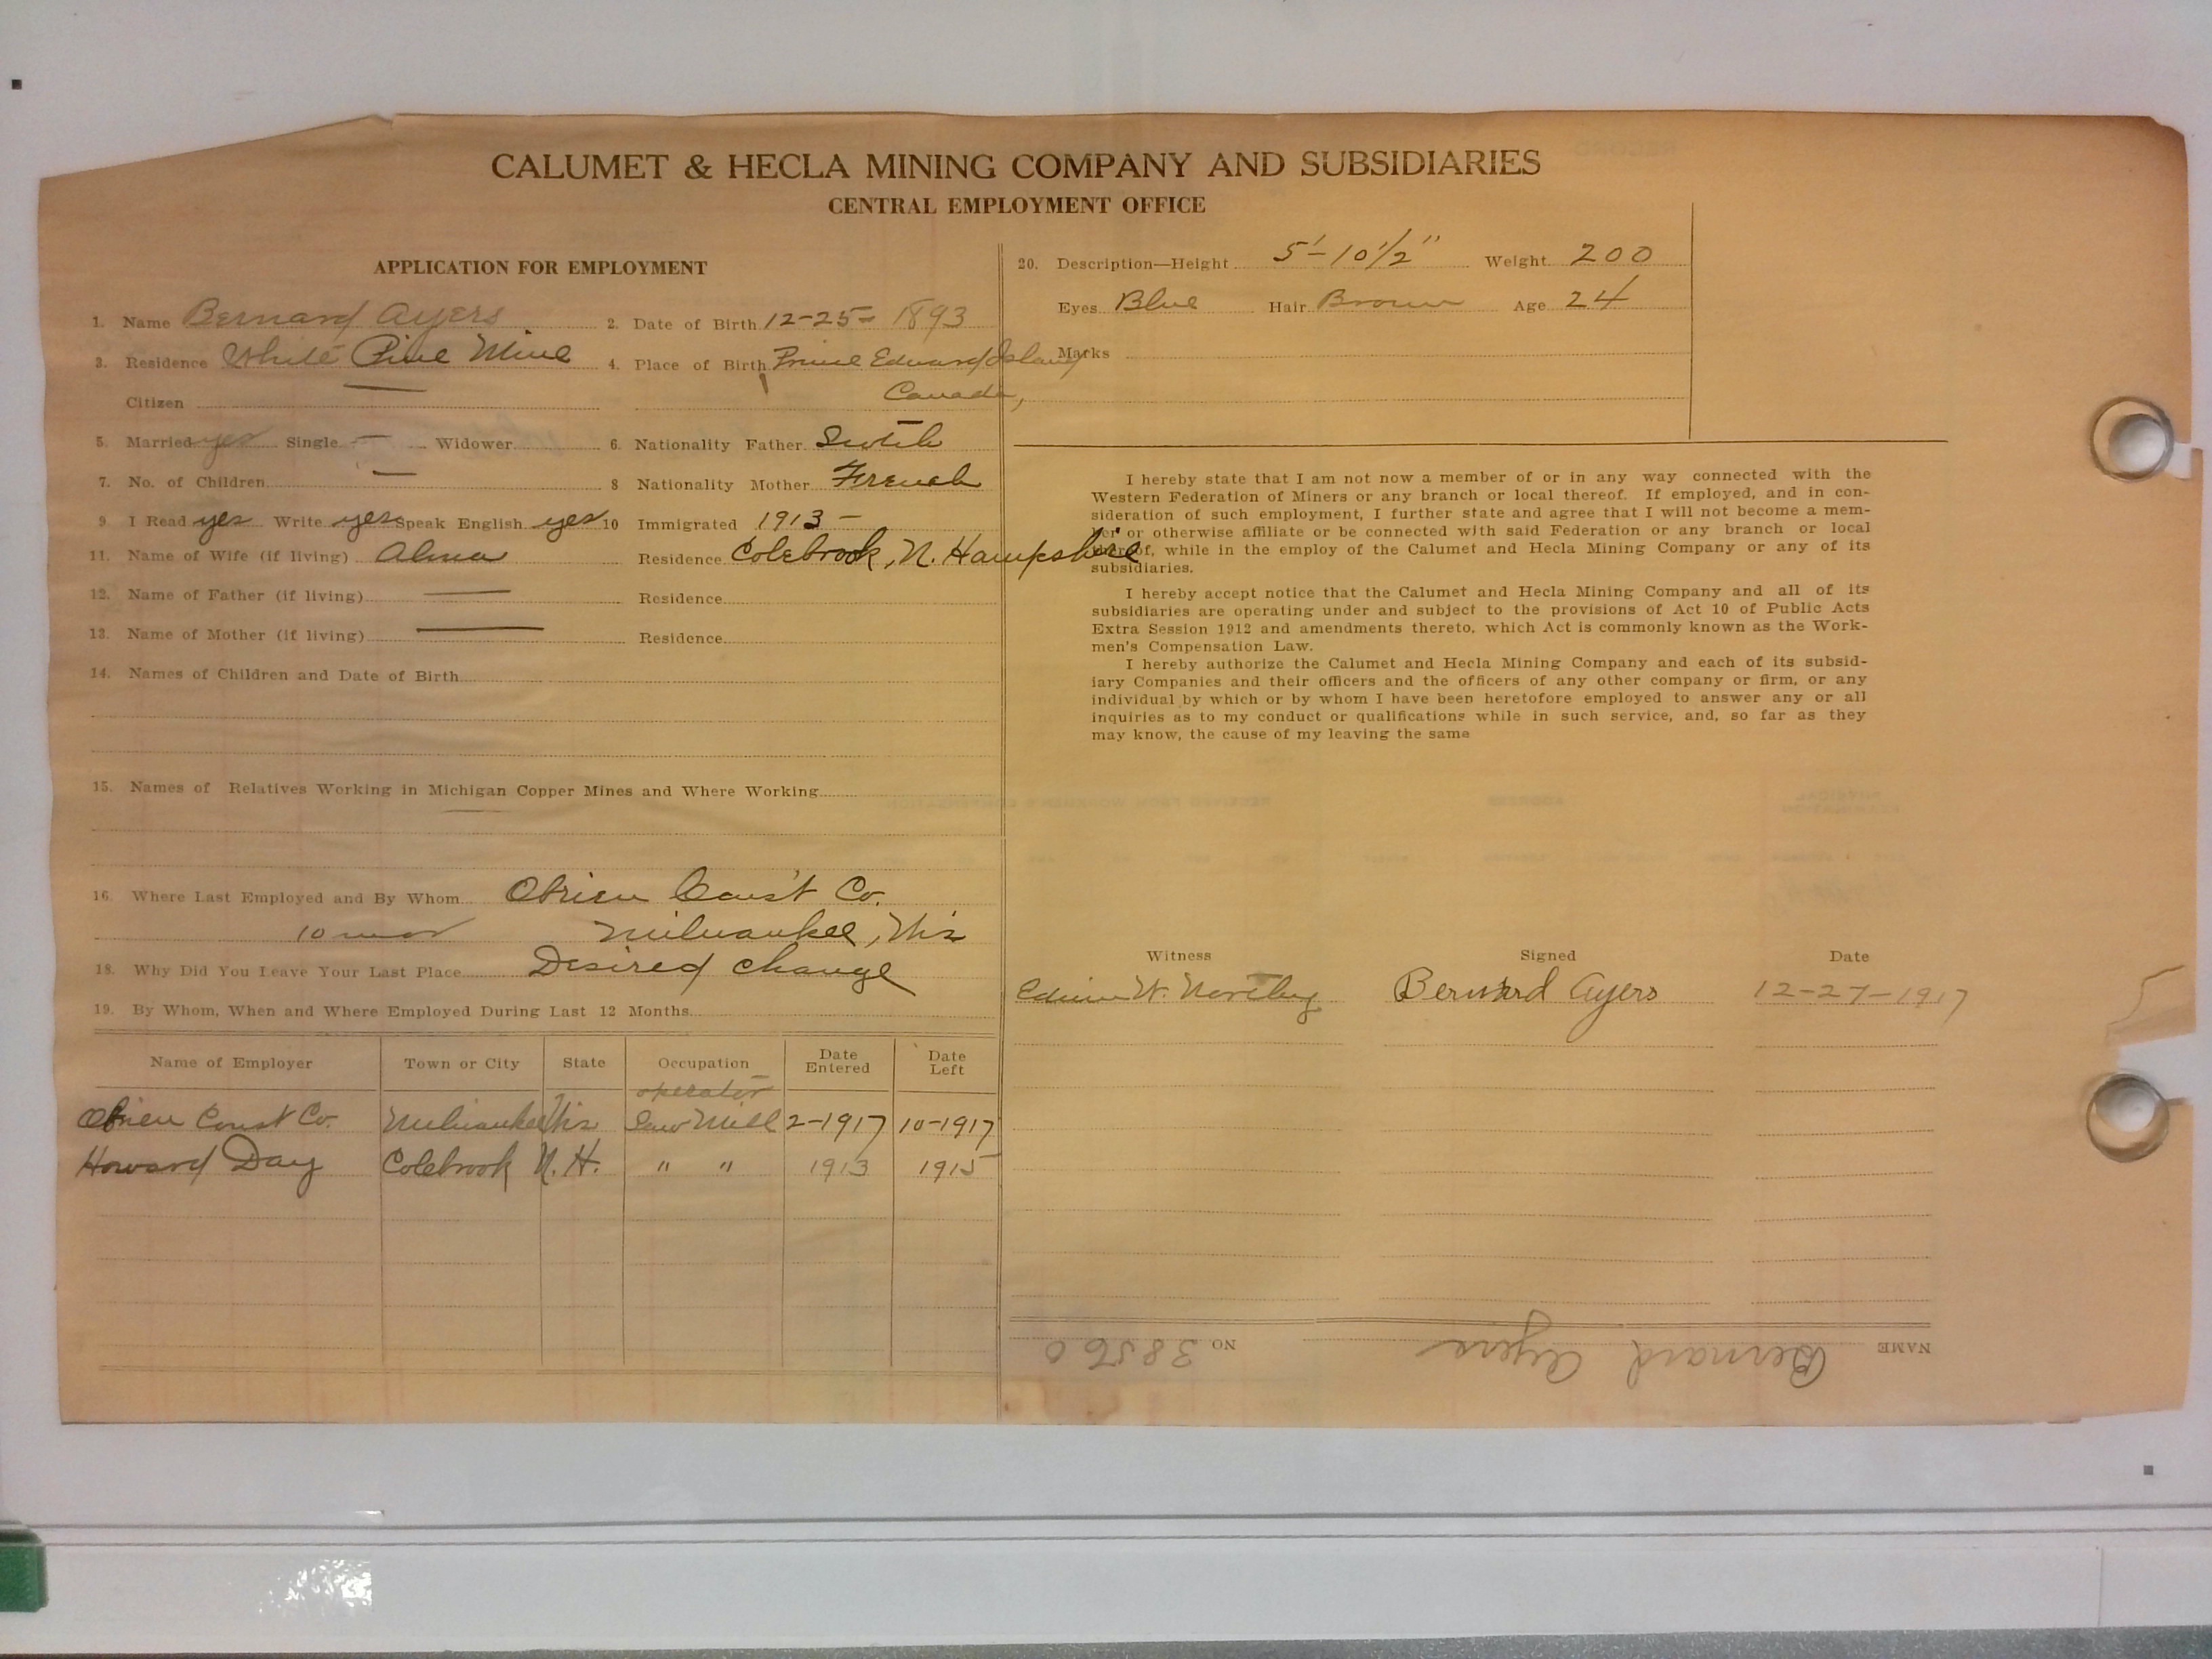 CALUMET & HECLA MINING COMPANY AND SUBSIDIARIES
CENTRAL EMPLOYMENT OFFICE
APPLICATION FOR EMPLOYMENT
1. Name Bernard Ayers 2. Date of Birth 12-25- 1893
3. Residence White Pine Mine 4. Place of Birth Prince Edward Island
Citizen — Canada,
5. Married yes Single — Widower 6. Nationality Father Scotch
7. No. of Children — 8 Nationality Mother French
9. I Read yes Write yes Speak English yes 10 Immigrated 1913 -
11. Name of Wife (if living) Alma Residence Colebrook, N. Hampshire
12. Name of Father (if living) — Residence
13. Name of Mother (if living) — Residence
14. Names of Children and Date of Birth
15. Names of Relatives Working in Michigan Copper Mines and Where Working
—
16. Where Last Employed and By Whom Obrien Const Co.
10 mos Milwaukee, Wis
18. Why Did You Leave Your Last Place Desired change
19. By Whom, When and Where Employed During Last 12 Months
Name of Employer Town or City State Occupation Date Entered Date Left
operator
Obrien Const Co. Milwaukee Wis Saw Mill 2-1917 10-1917
Howard Day Colebrook N. H. " " 1913 1915
20. Description—Height 5'-10 1/2" Weight 200
Eyes Blue Hair Brown Age 24
Marks
I hereby state that I am not now a member of or in any way connected with the
Western Federation of Miners or any branch or local thereof. If employed, and in con-
sideration of such employment, I further state and agree that I will not become a mem-
ber or otherwise affiliate or be connected with said Federation or any branch or local
thereof, while in the employ of the Calumet and Hecla Mining Company or any of its
subsidiaries.
I hereby accept notice that the Calumet and Hecla Mining Company and all of its
subsidiaries are operating under and subject to the provisions of Act 10 of Public Acts
Extra Session 1912 and amendments thereto, which Act is commonly known as the Work-
men's Compensation Law.
I hereby authorize the Calumet and Hecla Mining Company and each of its subsid-
iary Companies and their officers and the officers of any other company or firm, or any
individual by which or by whom I have been heretofore employed to answer any or all
inquiries as to my conduct or qualifications while in such service, and, so far as they
may know, the cause of my leaving the same
Witness Signed Date
W. Bernard Ayers 12-27-1917
NAME Bernard Ayers NO 38560